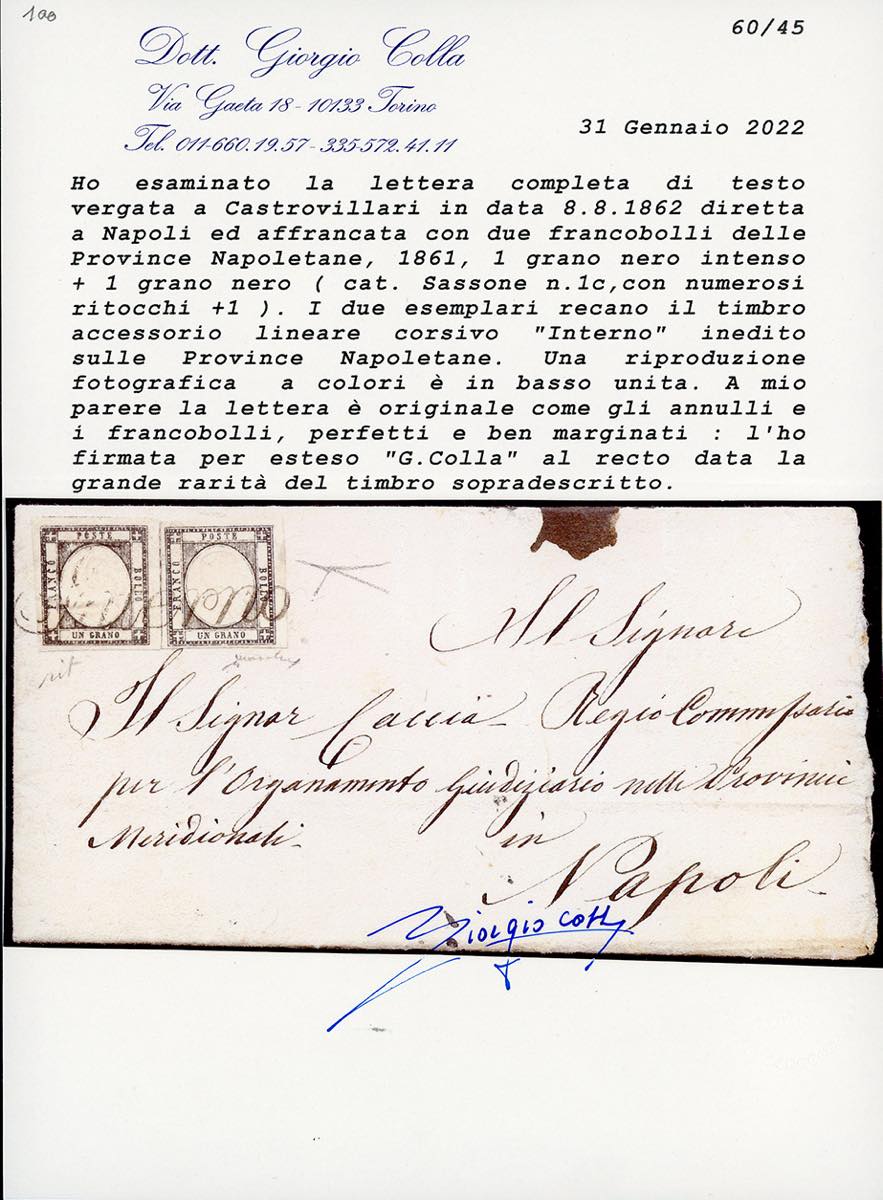 100
60/45
Dott. Giorgio Colla
Via Gaeta 18 - 10133 Torino
Tel. 011-660.19.57 - 335-572.41.11
31 Gennaio 2022
Ho esaminato la lettera completa di testo
vergata a Castrovillari in data 8.8.1862 diretta
a Napoli ed affrancata con due francobolli delle
Province Napoletane, 1861, 1 grano nero intenso
+ 1 grano nero ( cat. Sassone n.1c,con numerosi
ritocchi +1 ). I due esemplari recano il timbro
accessorio lineare corsivo "Interno" inedito
sulle Province Napoletane. Una riproduzione
fotografica a colori è in basso unita. A mio
parere la lettera è originale come gli annulli e
i francobolli, perfetti e ben marginati : l'ho
firmata per esteso "G.Colla" al recto data la
grande rarità del timbro sopradescritto.
POSTE POSTE
FRANCO BOLLO FRANCO BOLLO
UN GRANO UN GRANO
rit
All Signore
Il Signor Caccia Regio Commissario
per l'Organamento Giudiziario nelle Provincie
Meridionali in
Napoli
Giorgio Colla